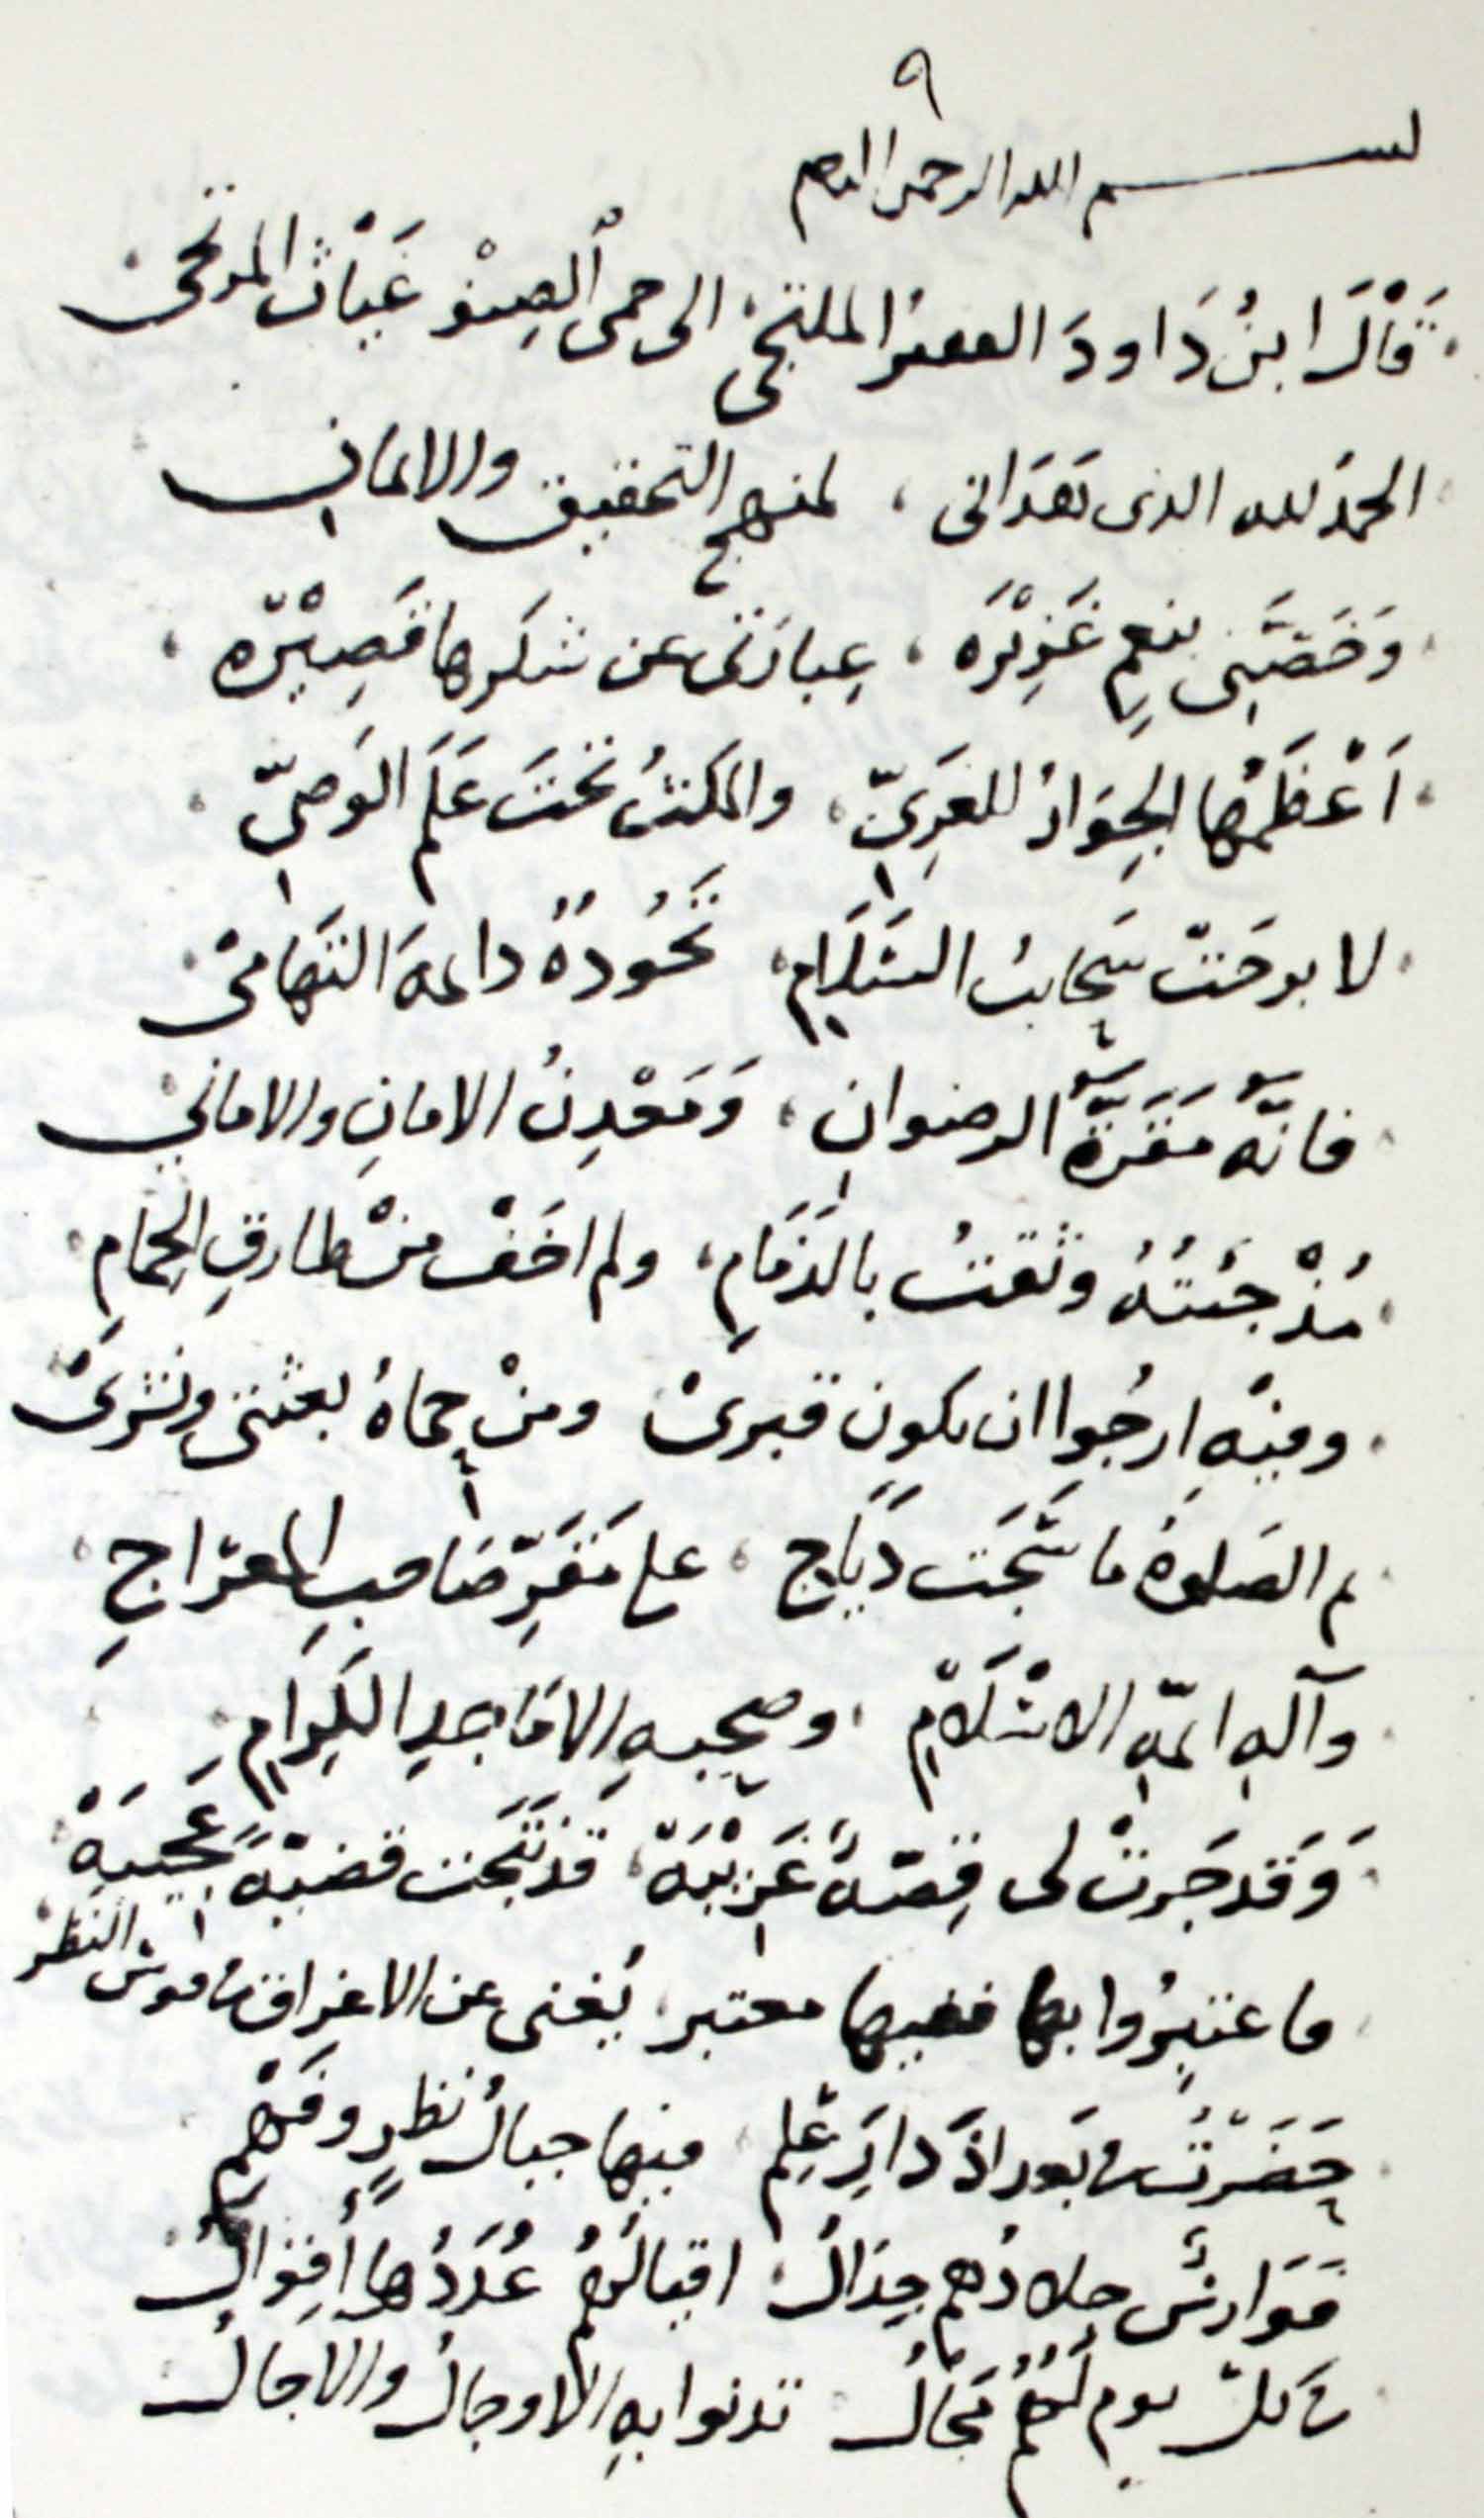 ٩
بسم الله الرحمن الرحيم
قَالَ ابنُ دَاودَ الفقيرُ الملتجىْ الى حمى الصِنْوِ غَيَاث المرتجىْ
الحمدُ لله الذى هَدَانى ، لمنهج التحقيق والايمانِ
وَخَصَّنى بنعمٍ غَزِيْرَه ، عِبارَتى عن شكرها قَصِيْرَه ،
اَعْظَمُها الجِوَارُ للغَرِىّ ، والمَكْثُ تَحْتَ عَلَمِ الوَصِىّ
لا برحَتْ سَحايبُ السَلَامِ تَجُودُهُ دايمةَ التَهَامىْ
فانّهُ مَقَرّةُ الرضوانِ ، وَمَعْدِنُ الامانِ والامانىْ
مُذْ جئتُهُ وثقتُ بالذِمَامِ ، ولم اخَفْ منْ طارقِ الحِمَامِ
وفيْهِ ارجُوا ان يكون قبرىْ ومنْ حِمَاهُ بعثتى ونشرىْ
ثم الصَلوةُ ما سَجَت دَيَاجِ ، على مَقَرِّ صَاحبِ المعرَاجِ
وآلهِ ايمّةِ الاسْلَامِ ، وصحبهِ الامَاجدِ الكِرَامِ
وَقَد جَرتْ لى قِصّةٌ غَرِيْبَهْ ، قَدْ نَتَجَت قضيّةً عَجيبَهْ
فاعتبِرُوا بها ففيها معتبر ، يُغنى عن الاغراق فى قوس النظر
حَضَرْتُ فى بَغداذَ دَارَ عِلْمِ ، فيها جبالُ نظرٍ وفَهْمِ
فَوَارسٌ جلادُهم جِدَالُ ، اقيالُهُمُ عُدَدُها أقوالُ
فى كلّ يوم لَهُمُ مَجَالُ تدنوا بهِ الاوجالُ والاجالُ